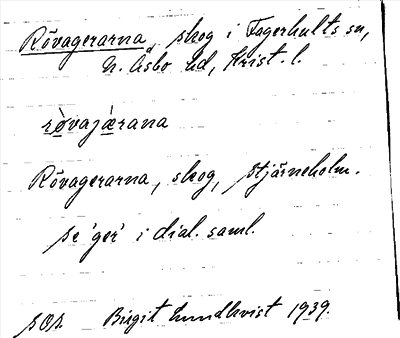 Rövagerarna, skog i Fagerhults sn,
N. Åsbo hd, Krist. l.
rövajærana
Rövagerarna, skog, Stjärneholm.
se 'ger' i dial. saml.
sos. Birgit Lundkvist 1939.